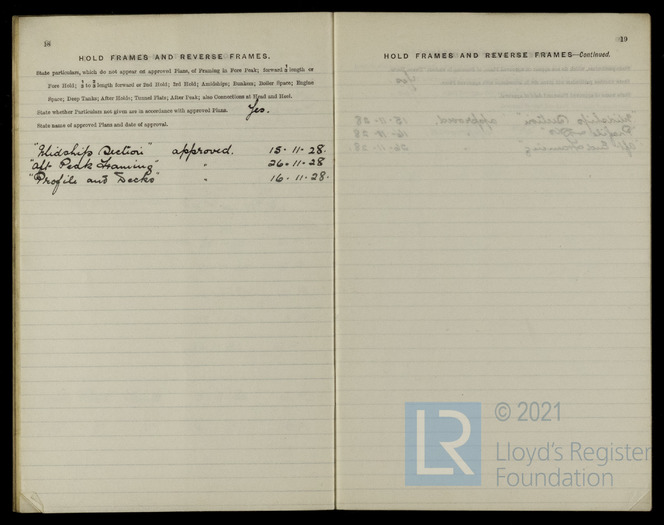 18
HOLD FRAMES AND REVERSE FRAMES.
State particulars, which do not appear on approved Plans, of Framing in Fore Peak; forward ½ length or
Fore Hold; ½ to ¾ length forward or 2nd Hold; 3rd Hold; Amidships; Bunkers; Boiler Space; Engine
Space; Deep Tanks; After Holds; Tunnel Flats; After Peak; also Connections at Head and Heel.
State whether Particulars not given are in accordance with approved Plans. Yes.
State name of approved Plans and date of approval.
"Midship Section" approved. 15·11·28.
"Aft Peak Framing" " 26·11·28
"Profile and Decks" " 16·11·28.
19
HOLD FRAMES AND REVERSE FRAMES—Continued.
LR
© 2021
Lloyd's Register
Foundation